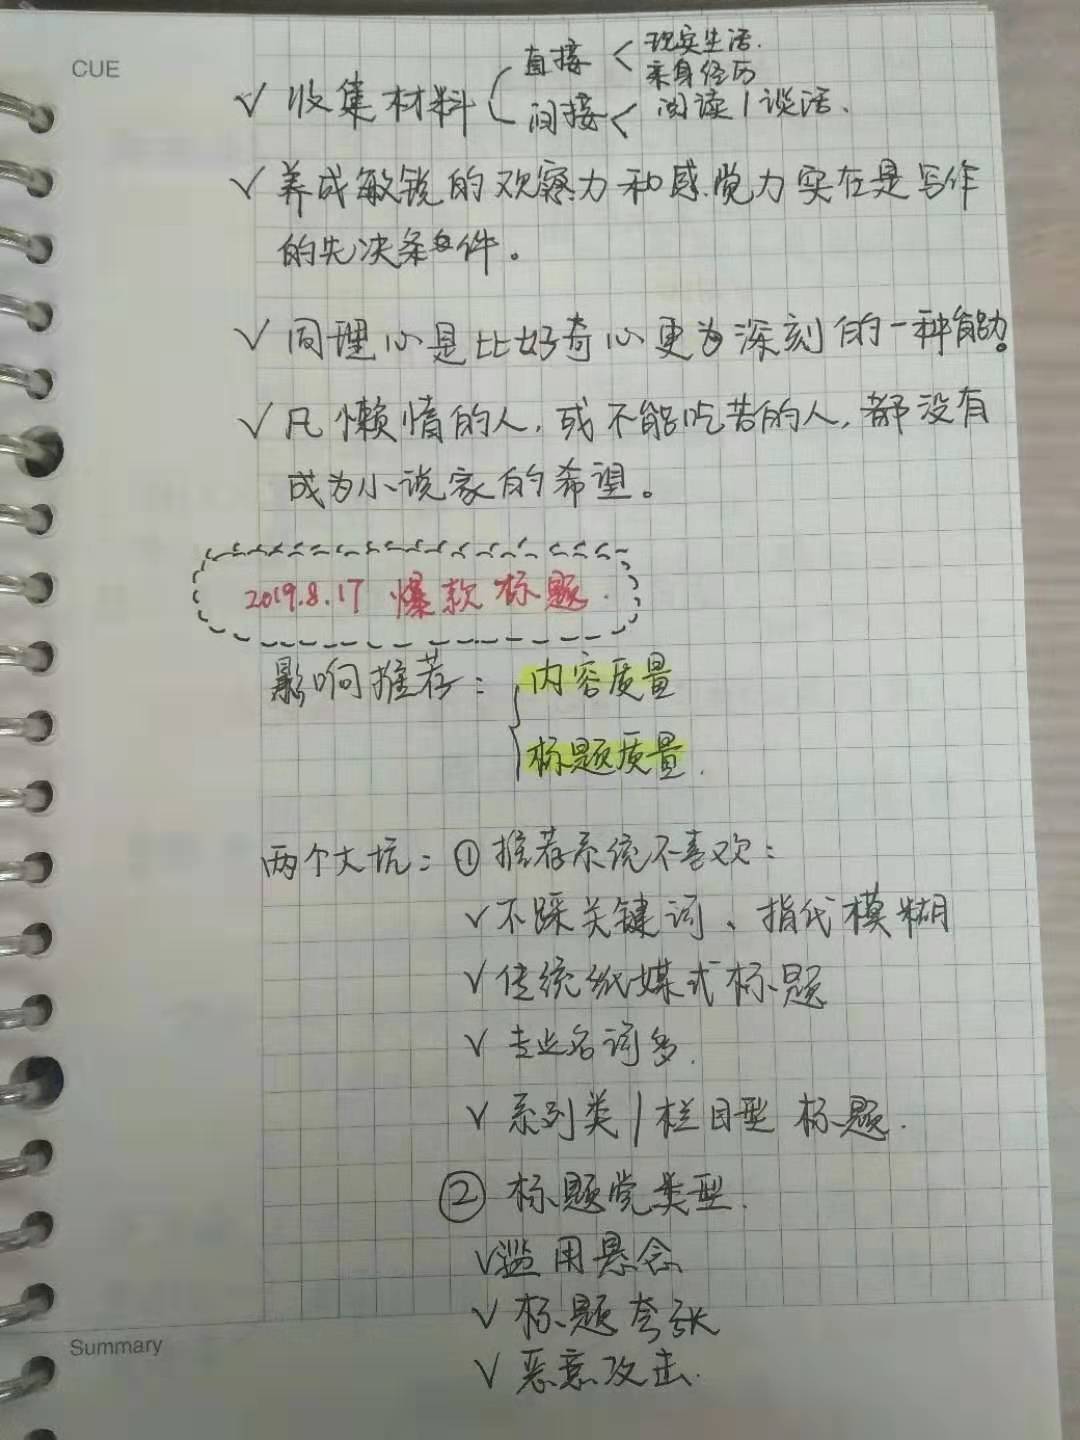 CUE
直接 < 现实生活.
亲身经历
✓ 收集材料
间接 < 阅读/谈话.
✓ 养成敏锐的观察力和感觉力实在是写作
的先决条件。
✓ 同理心是比好奇心更为深刻的一种能力。
✓ 凡懒惰的人,或不能吃苦的人,都没有
成为小说家的希望。
2019.8.17 爆款标题.
影响推荐: 内容质量
标题质量.
两个大坑: ①推荐系统不喜欢:
✓ 不踩关键词、指代模糊
✓ 传统纸媒式标题
✓ 专业名词多.
✓ 系列类/栏目型 标题.
② 标题党类型.
✓滥用悬念
✓ 标题夸张
Summary
✓ 恶意攻击.